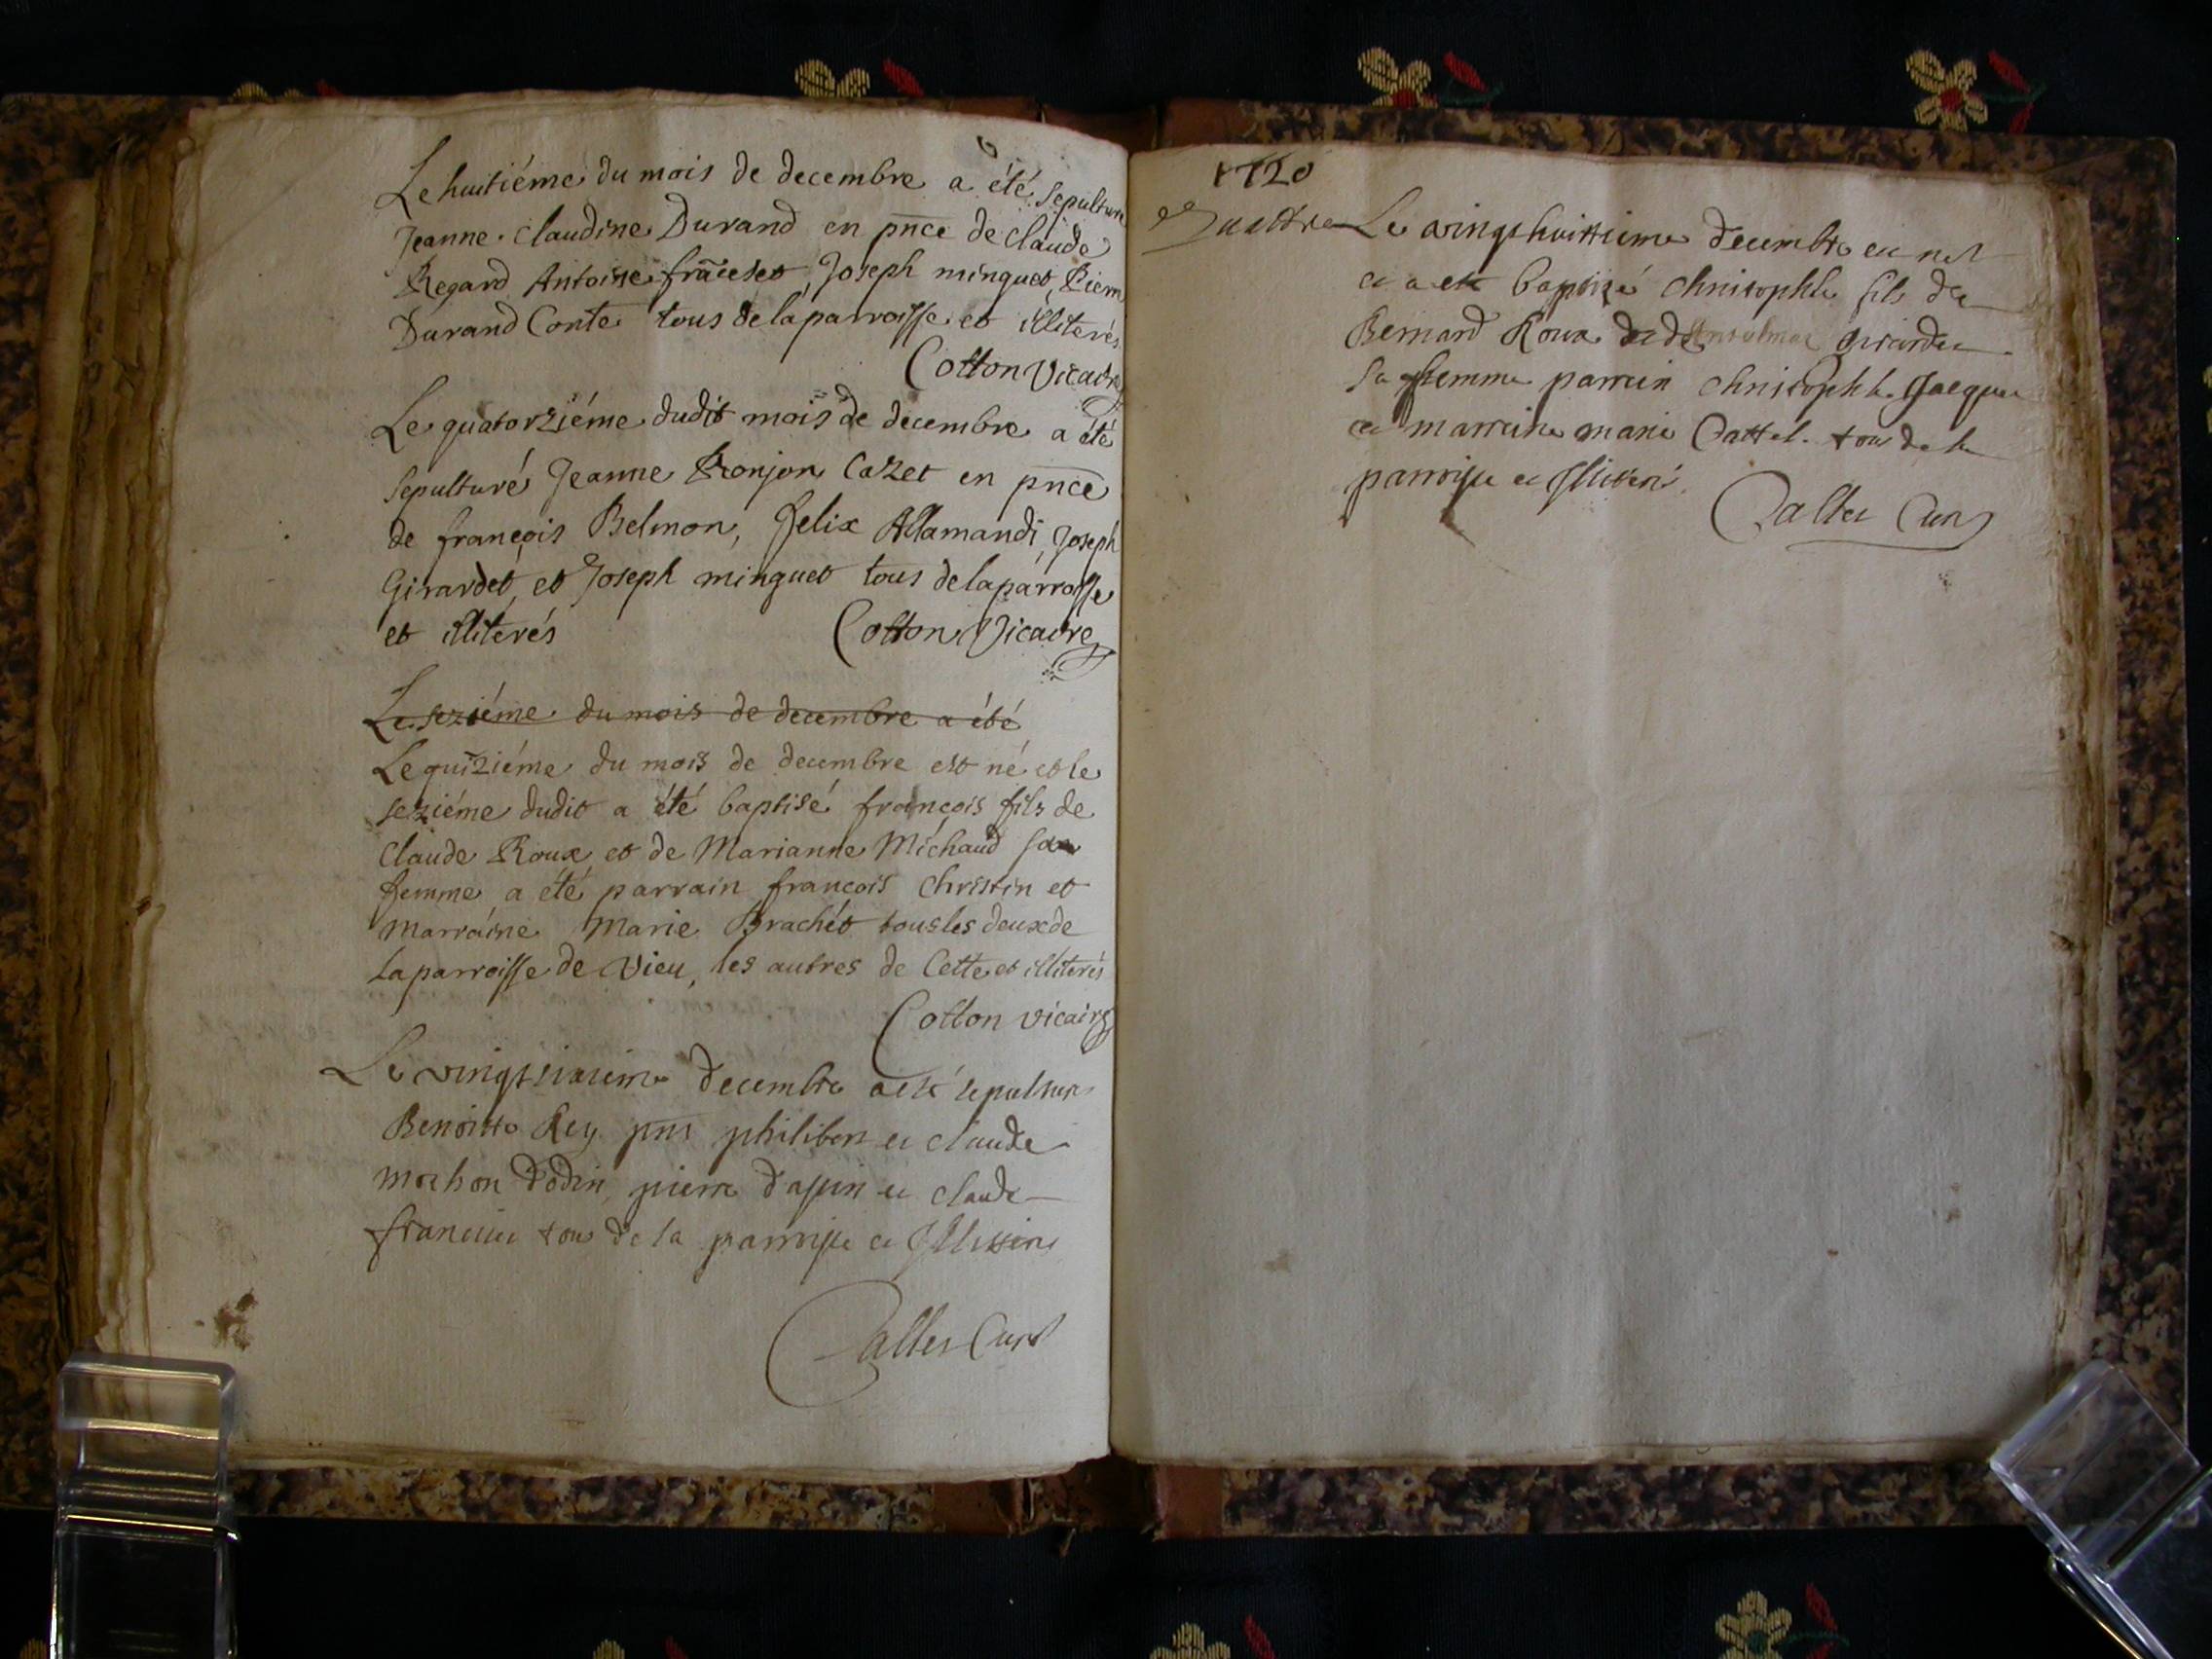 Le huitiéme du mois de decembre a été sepulturé
Jeanne Claudine Durand en pnce de Claude
Regard Antoine franceset, Joseph minguet, Pierre
Durand Conte tous de la parroisse et illiterés
Cotton Vicaire
Le quatorziéme dudit mois de decembre a été
sepulturé Jeanne Ronjon Cazet en pnce
de françois Belmon, felix Allamandi, Joseph
Girardet, et Joseph minguet tous de la parroisse
et illiterés Cotton Vicaire
Le seziéme du mois de decembre a été
Le quiziéme du mois de decembre est né et le
seziéme dudit a été baptisé françois fils de
Claude Roux et de Marianne Michaud sa
femme a été parrain francois Christin et
marraine Marie Brachet tous les deux de
la parroisse de Vieu, les autres de Cette et illiterés
Cotton vicaire
Le vingt sixieme decembre a esté sepulturé
Benoitte Rey pnt philibert et claude
mochon dodin, pierre dapin et claude
francillie tous de la parroisse et Illiteres
Curé
1720
quattre Le vingt huittieme decembre est né
et a esté baptizé christophle fils de
Bernard Roux et de girardet
sa femme parrein christophle Jacques
et marreine marie Cattel tous de la
parroisse et Illiterés
Curé